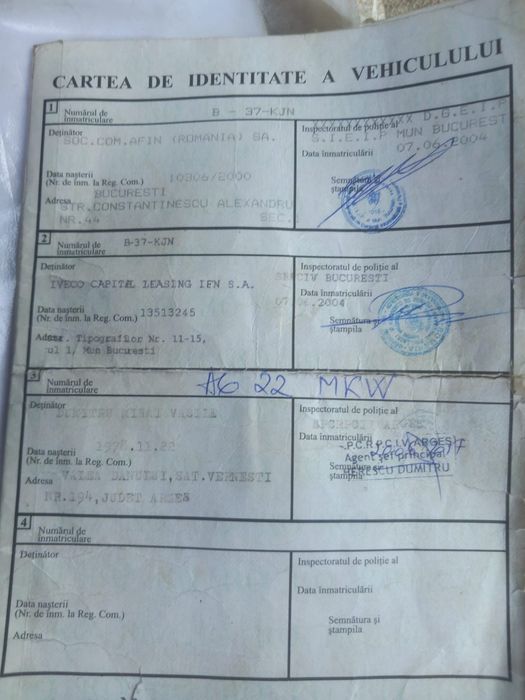 CARTEA DE IDENTITATE A VEHICULULUI
1 Numărul de înmatriculare B - 37-KJN
Deţinător
SOC.COM.AFIN (ROMANIA) SA.
Data naşterii
(Nr. de înm. la Reg. Com.) 10306/2000
BUCURESTI
Adresa STR.CONSTANTINESCU ALEXANDRU
NR.44 SEC.
Inspectoratul de poliţie al D.G.E.I.P
S.I.E.I.P MUN BUCUREST
Data înmatriculării 07.06.2004
Semnătura şi
ştampila
2 Numărul de înmatriculare B-37-KJN
Deţinător
IVECO CAPITAL LEASING IFN S.A.
Data naşterii
(Nr. de înm. la Reg. Com.) 13513245
Adresa Tipografilor Nr. 11-15,
ul 1, Mun Bucuresti
Inspectoratul de poliţie al
BUCURESTI
Data înmatriculării
2004
Semnătura şi
ştampila
3 Numărul de înmatriculare AG 22 MKW
Deţinător
DUMITRU MIHAI VASILE
Data naşterii
(Nr. de înm. la Reg. Com.)
Adresa VALEA DANULUI, SAT.VERNESTI
NR.194, JUDET ARGES
Inspectoratul de poliţie al
ARGES
Data înmatriculării
S.P.C.R.P.C.I.V. ARGEŞ
Agent şef principal
Semnătura şi
HERESCU DUMITRU
ştampila
4 Numărul de înmatriculare
Deţinător
Data naşterii
(Nr. de înm. la Reg. Com.)
Adresa
Inspectoratul de poliţie al
Data înmatriculării
Semnătura şi
ştampila